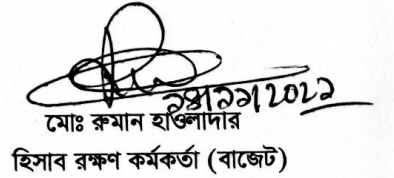 ২৪|১১|২০২১
মোঃ রুমান হাওলাদার
হিসাব রক্ষণ কর্মকর্তা (বাজেট)